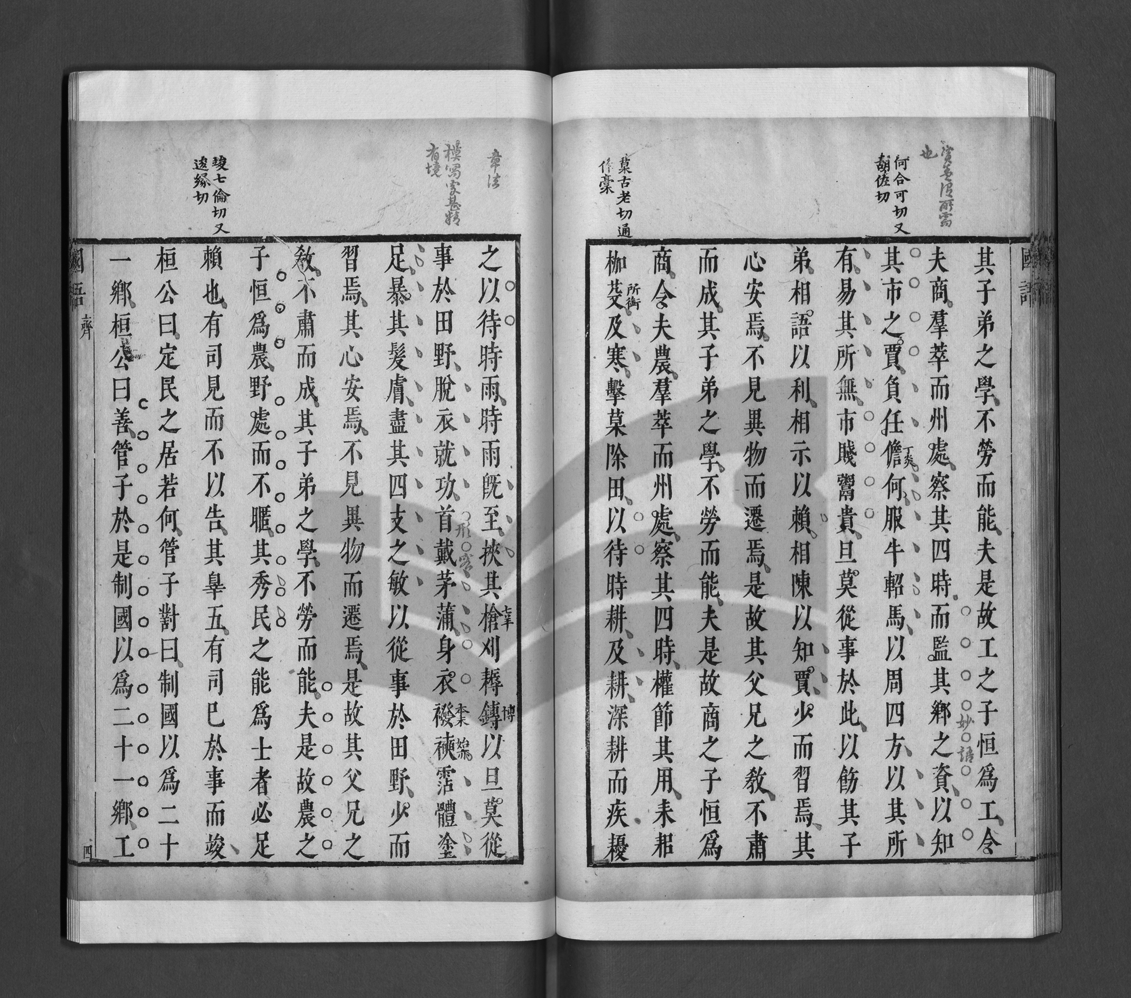 資無退所需
也
何合可切又
胡佐切
藁古老切通
作槀
國語
其子弟之學不勞而能夫是故工之子恒爲工令
夫商羣萃而州處察其四時而監其鄉之資以知
妙語
其市之賈負任儋何服牛軺馬以周四方以其所
丁炎
有易其所無市賤鬻貴旦莫從事於此以飭其子
弟相語以利相示以賴相陳以知賈少而習焉其
心安焉不見異物而遷焉是故其父兄之敎不肅
而成其子弟之學不勞而能夫是故商之子恒爲
商令夫農羣萃而州處察其四時權節其用耒耜
枷芟及寒擊菒除田以待時耕及耕深耕而疾耰
所銜
章法
模寫家甚精
有境
竣七倫切又
逡緣切
之以待時雨時雨旣至挾其槍刈耨鎛以旦莫從
博
事於田野脫衣就功首戴茅蒲身衣襏襫霑體塗
形容
足暴其髮膚盡其四支之敏以從事於田野少而
習焉其心安焉不見異物而遷焉是故其父兄之
敎不肅而成其子弟之學不勞而能夫是故農之
子恒爲農野處而不暱其秀民之能爲士者必足
賴也有司見而不以告其辠五有司巳於事而竣
桓公曰定民之居若何管子對曰制國以爲二十
一鄉桓公曰善管子於是制國以爲二十一鄉工
國語
齊
四